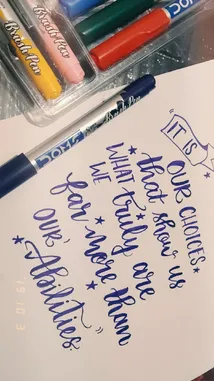 Brush Pen
Brush Pen
DOMS Brush Pen
"IT IS
OUR CHOICES
that show us
WHAT truly are
WE
far more than
OUR
Abilities"